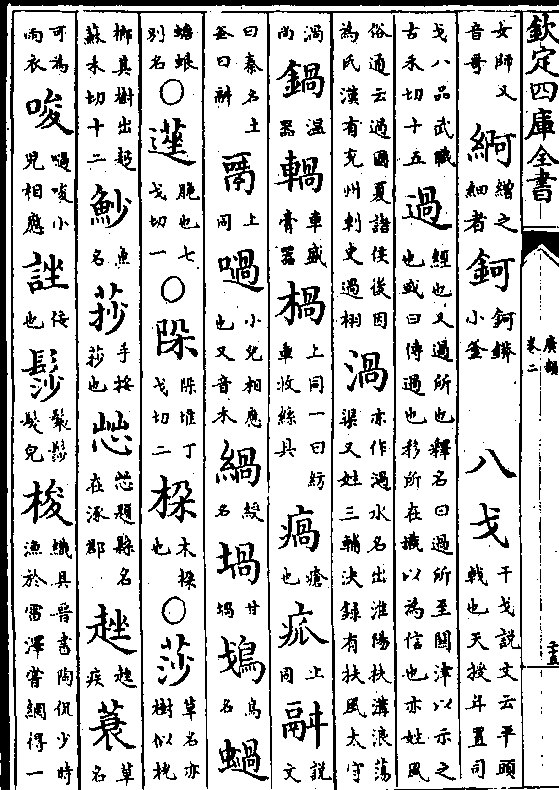 欽定四庫全書
廣韻
卷二
女師又音哥 繒之細者 鈳 鈳小釜 八戈 干戈說文云平頭戟也天授年置司
戈八品武職古禾切十五 過 經也又過所也釋名曰過所至關津以示之也或曰傳過也移所在識以為信也亦姓風
俗通云過國夏諸侯後因為氏漢有兖州刺史過栩 渦 亦作過水名出淮陽扶溝浪蕩渠又姓三輔決録有扶風太守
渦尚 鍋 温器 車盛膏器 楇 上同一曰紡車收絲具 瘑 瘡也 㽿 上同 說文
曰秦名土釜曰 上同 㗻 小兒相應也又音禾 緺 綬名 堝 甘堝 鳥名 蝸
蟾蜋別名 ○ 脃也七戈切一 ○ 堆丁戈切二 木也 ○ 莎 草名亦樹似桄
榔其樹出麪蘇禾切十二 魦 魚名 莏 手挼莏也 題縣名在涿郡 趖 趖疾 蓑 草名
可為雨衣 唆 㗻唆小兒相應 佞也 髿 髿髮皃 梭 織具晉書陶侃少時漁於雷澤嘗網得一